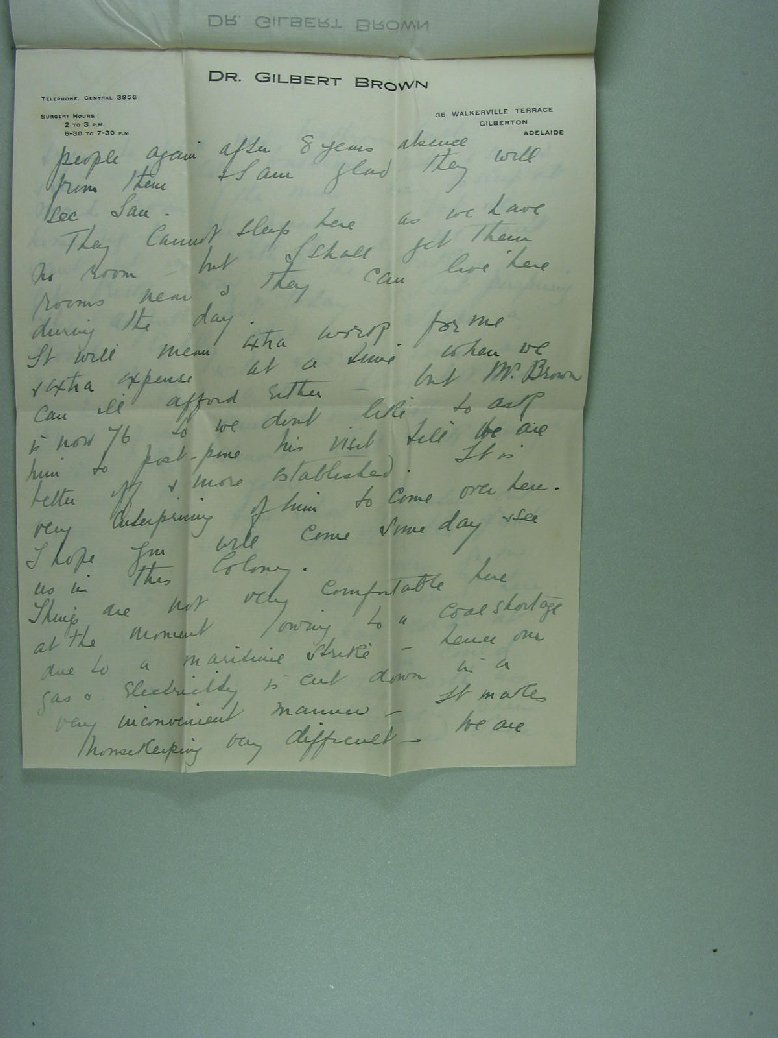 DR. GILBERT BROWN
DR. GILBERT BROWN
TELEPHONE, CENTRAL 3956
SURGERY HOURS
2 TO 3 P.M.
6-30 TO 7-30 P.M.
36 WALKERVILLE TERRACE
GILBERTON
ADELAIDE
people again after 8 years absence
from them & I am glad they will
see Ian.
They cannot sleep here as we have
no room but I shall get them
rooms near & they can live here
during the day.
It will mean extra work for me
& extra expense at a time when we
can ill afford either – but Mr. Brown
is now 76 so we dont like to ask
him to post-pone his visit till we are
better off & more established. It is
very enterprising of him to come over here.
I hope you will come some day & see
us in this Colony.
Things are not very comfortable here
at the moment owing to a coal shortage
due to a maritime strike – hence our
gas & electricity is cut down in a
very inconvenient manner – It makes
housekeeping very difficult – We are